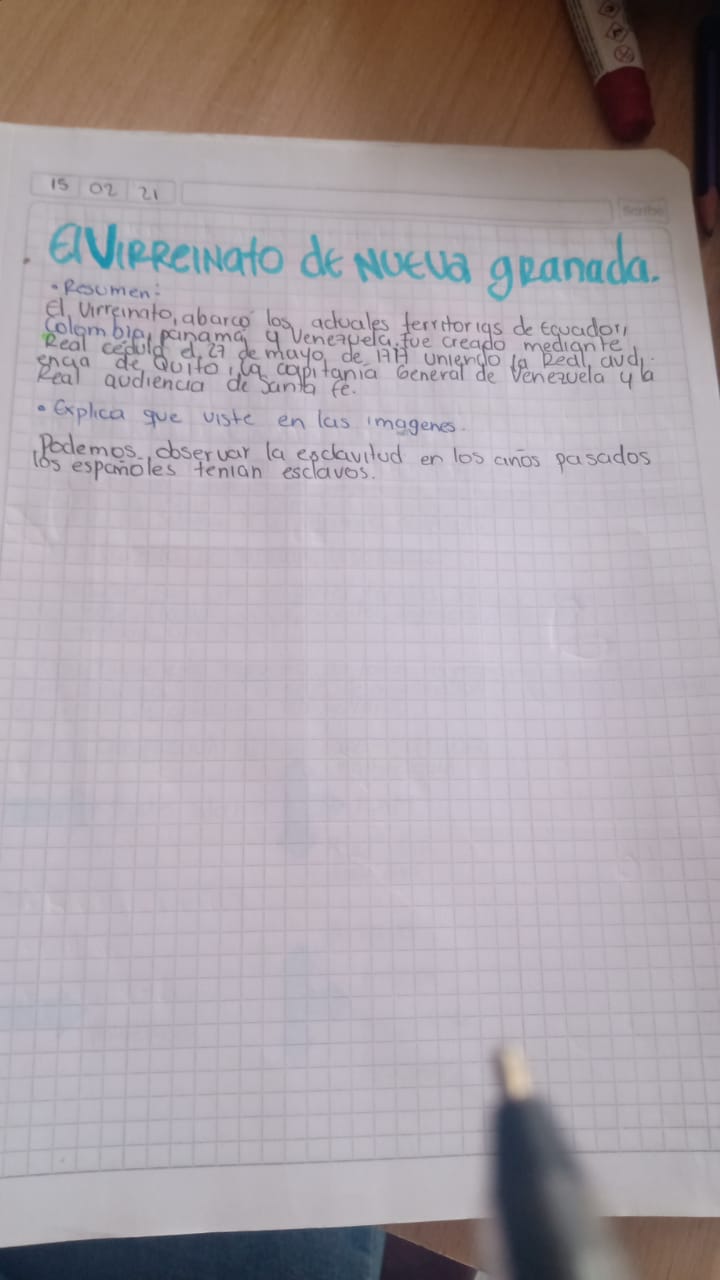 15 02 21
Scribe
El VIRREINato de NUEVa gRanada.
• Resumen:
El, Virreinato, abarco los actuales territorios de Ecuador,
Colombia, panamá y Venezuela, fue creado mediante
Real cédula el, 27 de mayo, de 1717 uniendo la Real, audi-
encia de Quito, la capitanía General de Venezuela y la
Real audiencia de Santa fe.
• Explica que viste en las imagenes.
Podemos, observar la esclavitud en los años pasados
los españoles tenian esclavos.